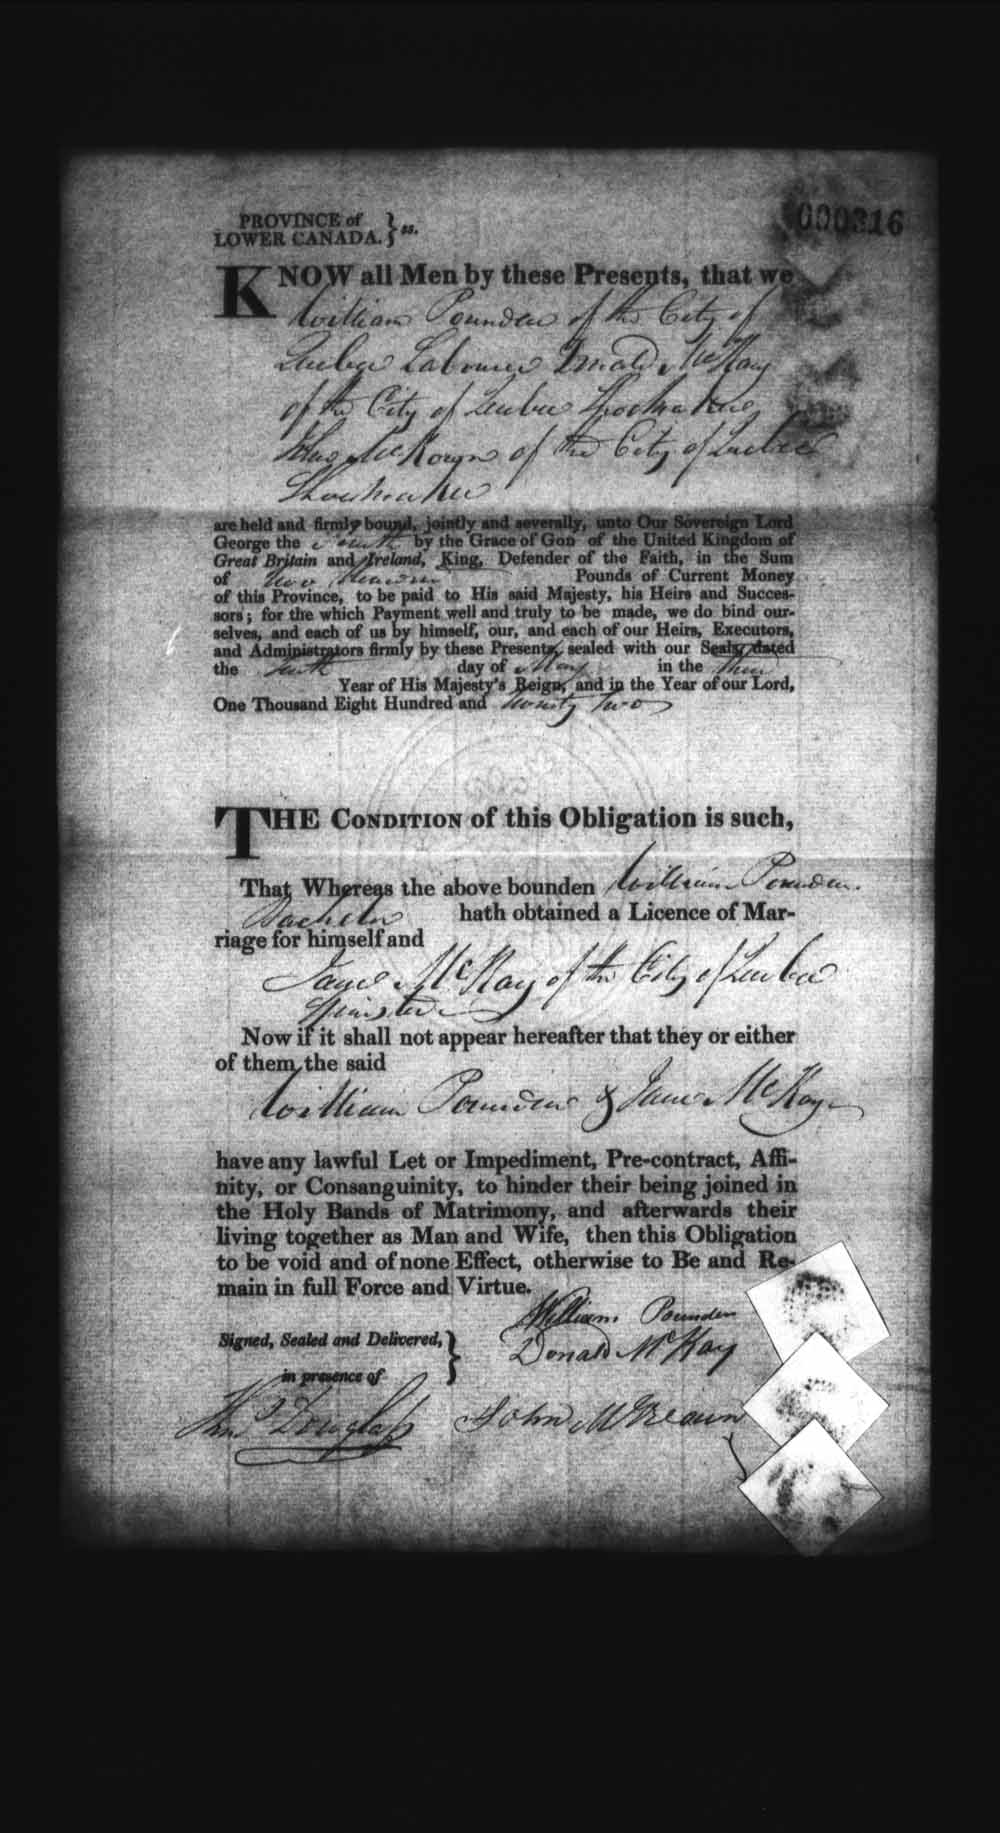 PROVINCE of
LOWER CANADA. } ss.
000316
KNOW all Men by these Presents, that we
William Pounden of the City of
Quebec Labourer Donald McKay
of the City of Quebec Shoemaker
John McKown of the City of Quebec
Shoemaker
are held and firmly bound, jointly and severally, unto Our Sovereign Lord
George the Fourth by the Grace of GOD of the United Kingdom of
Great Britain and Ireland, King, Defender of the Faith, in the Sum
of Two Pounds of Current Money
of this Province, to be paid to His said Majesty, his Heirs and Succes-
sors; for the which Payment well and truly to be made, we do bind our-
selves, and each of us by himself, our, and each of our Heirs, Executors,
and Administrators firmly by these Presents, sealed with our Seals, dated
the tenth day of May in the third
Year of His Majesty's Reign, and in the Year of our Lord,
One Thousand Eight Hundred and twenty two
THE CONDITION of this Obligation is such,
That Whereas the above bounden William Pounden
Bachelor hath obtained a Licence of Mar-
riage for himself and
Jane McKay of the City of Quebec
Spinster
Now if it shall not appear hereafter that they or either
of them, the said
William Pounden & Jane McKay
have any lawful Let or Impediment, Pre-contract, Affi-
nity, or Consanguinity, to hinder their being joined in
the Holy Bands of Matrimony, and afterwards their
living together as Man and Wife, then this Obligation
to be void and of none Effect, otherwise to Be and Re-
main in full Force and Virtue.
William Pounden
Signed, Sealed and Delivered, }
Donald McKay
in presence of
Thos Douglass John McKeown